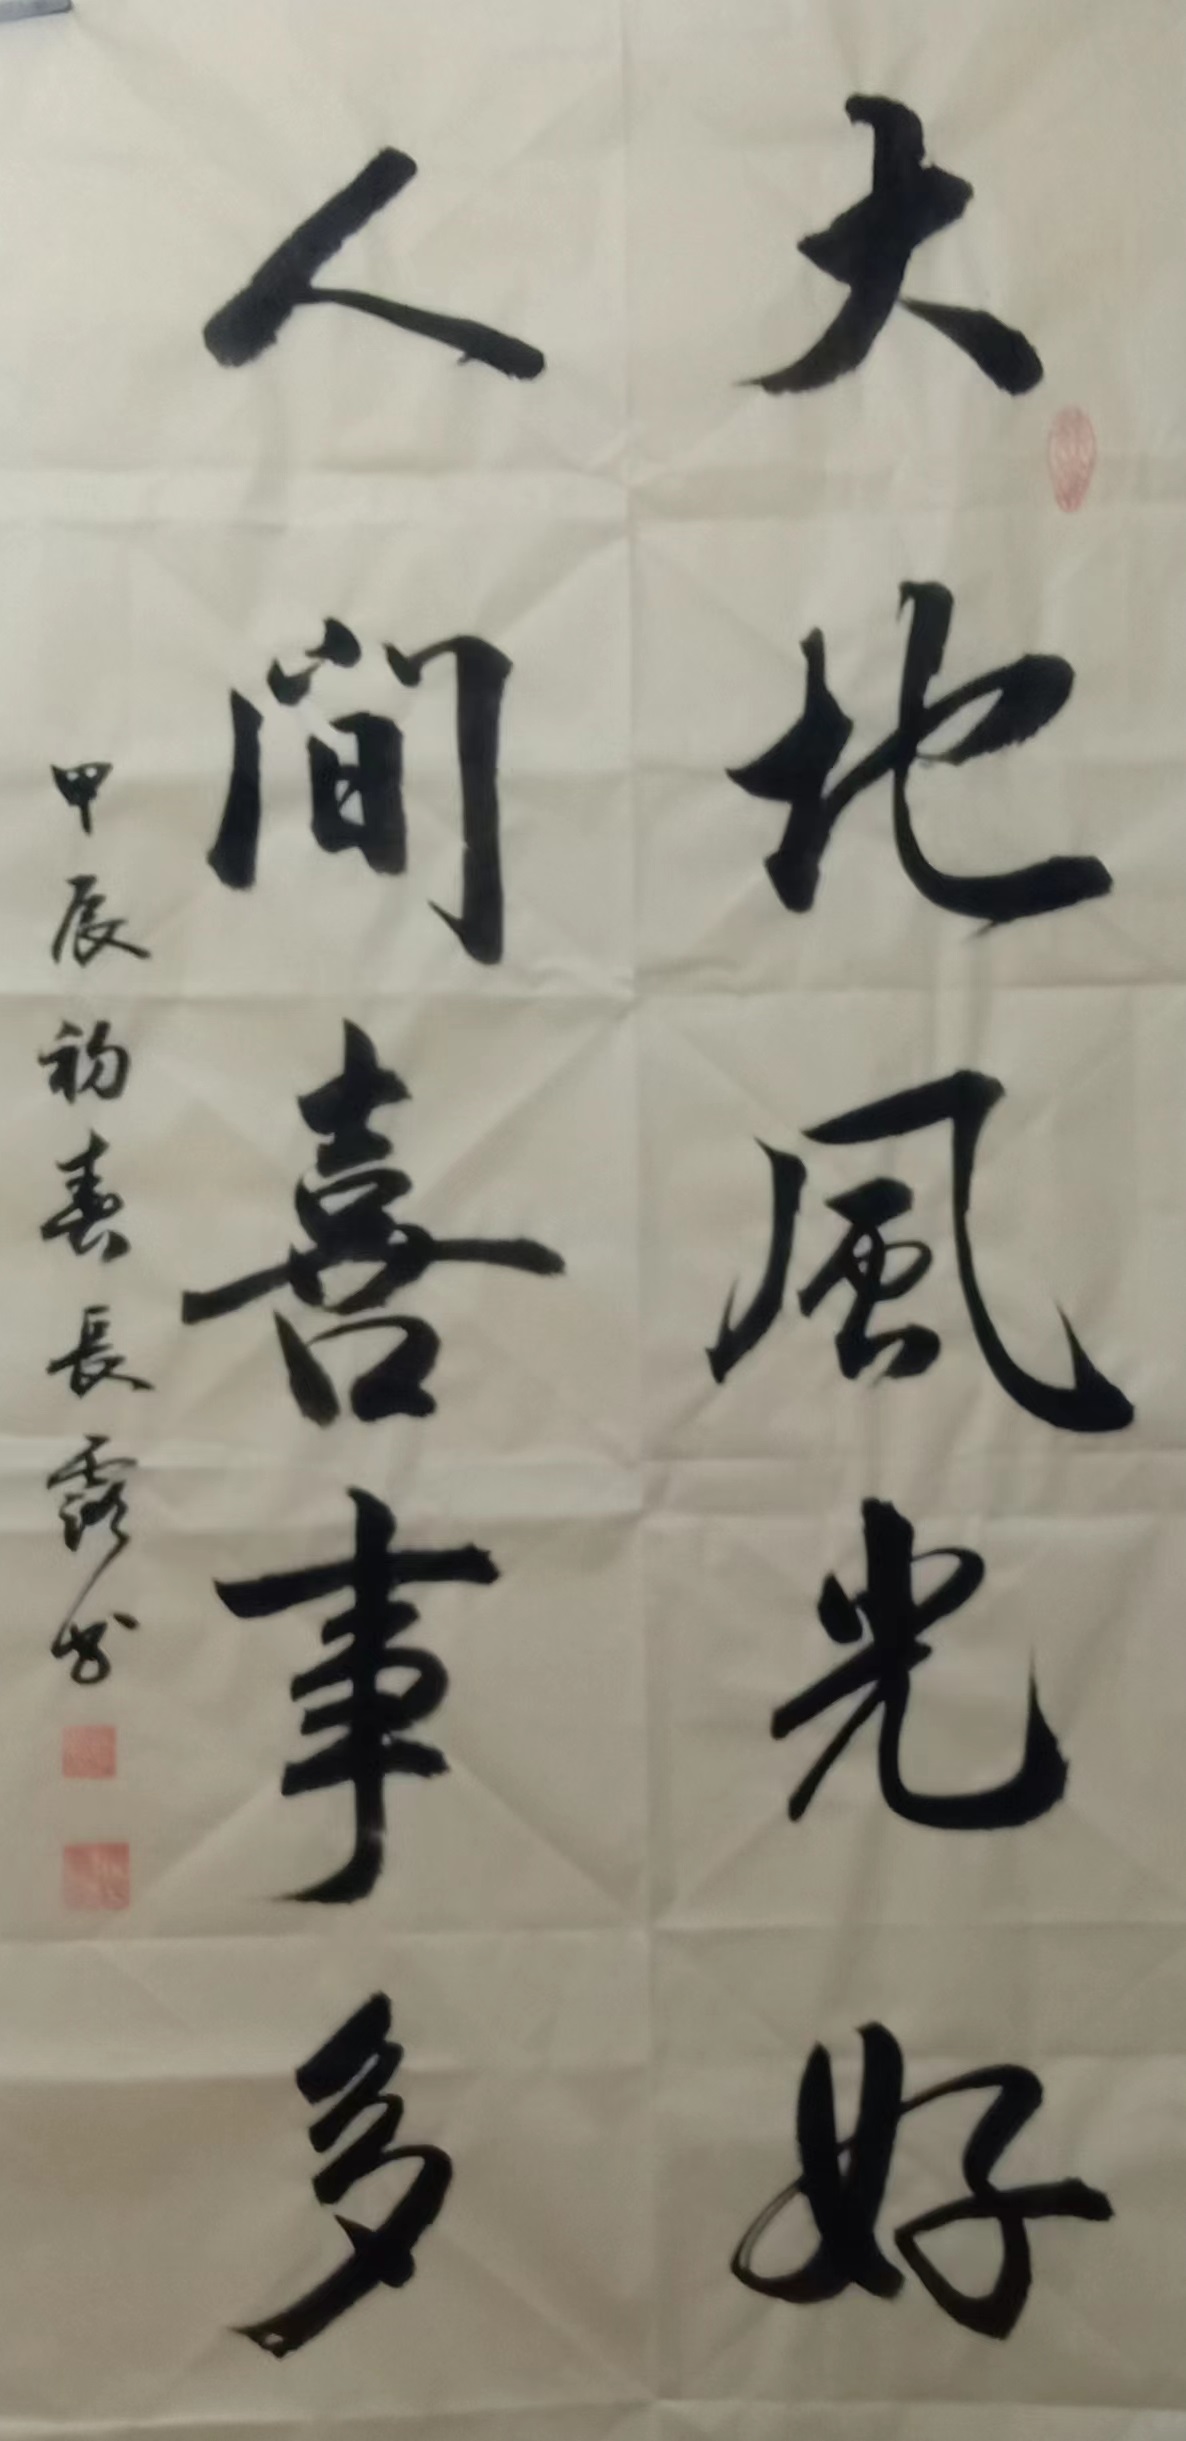 大地風光好
人間喜事多
甲辰初春長露书